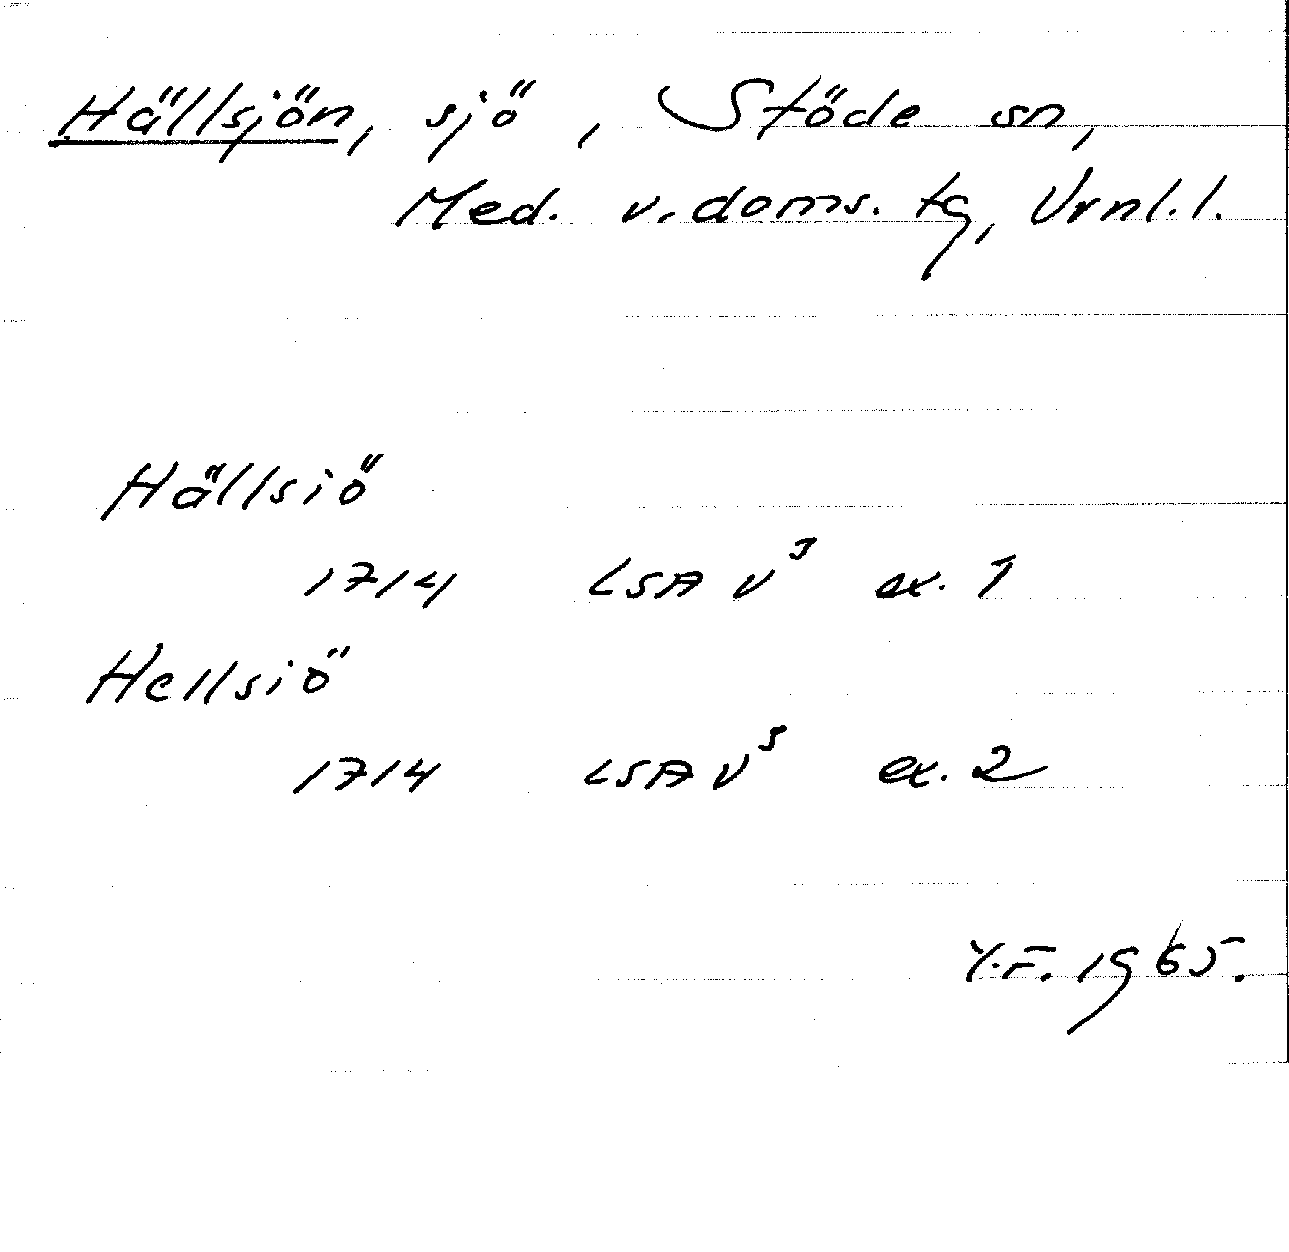 Hällsjön, sjö, Stöde sn,
Med. v. doms. tg, Vrnl. l.
Hällsiö
1714 LSA V⁵ ex. 1
Hellsiö
1714 LSA V⁵ ex. 2
Y.F. 1965.